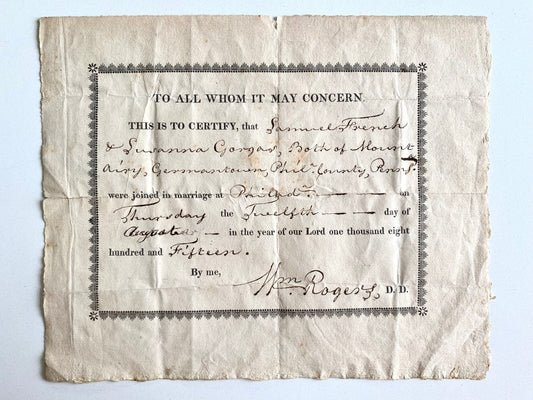 TO ALL WHOM IT MAY CONCERN.
THIS IS TO CERTIFY, that Samuel French
& Susanna Gorgas, Both of Mount
Airy, Germantown, Phila. County, Penns.
were joined in marriage at Philada. — — on
Thursday the Twelfth — — day of
— in the year of our Lord one thousand eight
hundred and Fifteen.
By me,
Wm. Rogers, D. D.